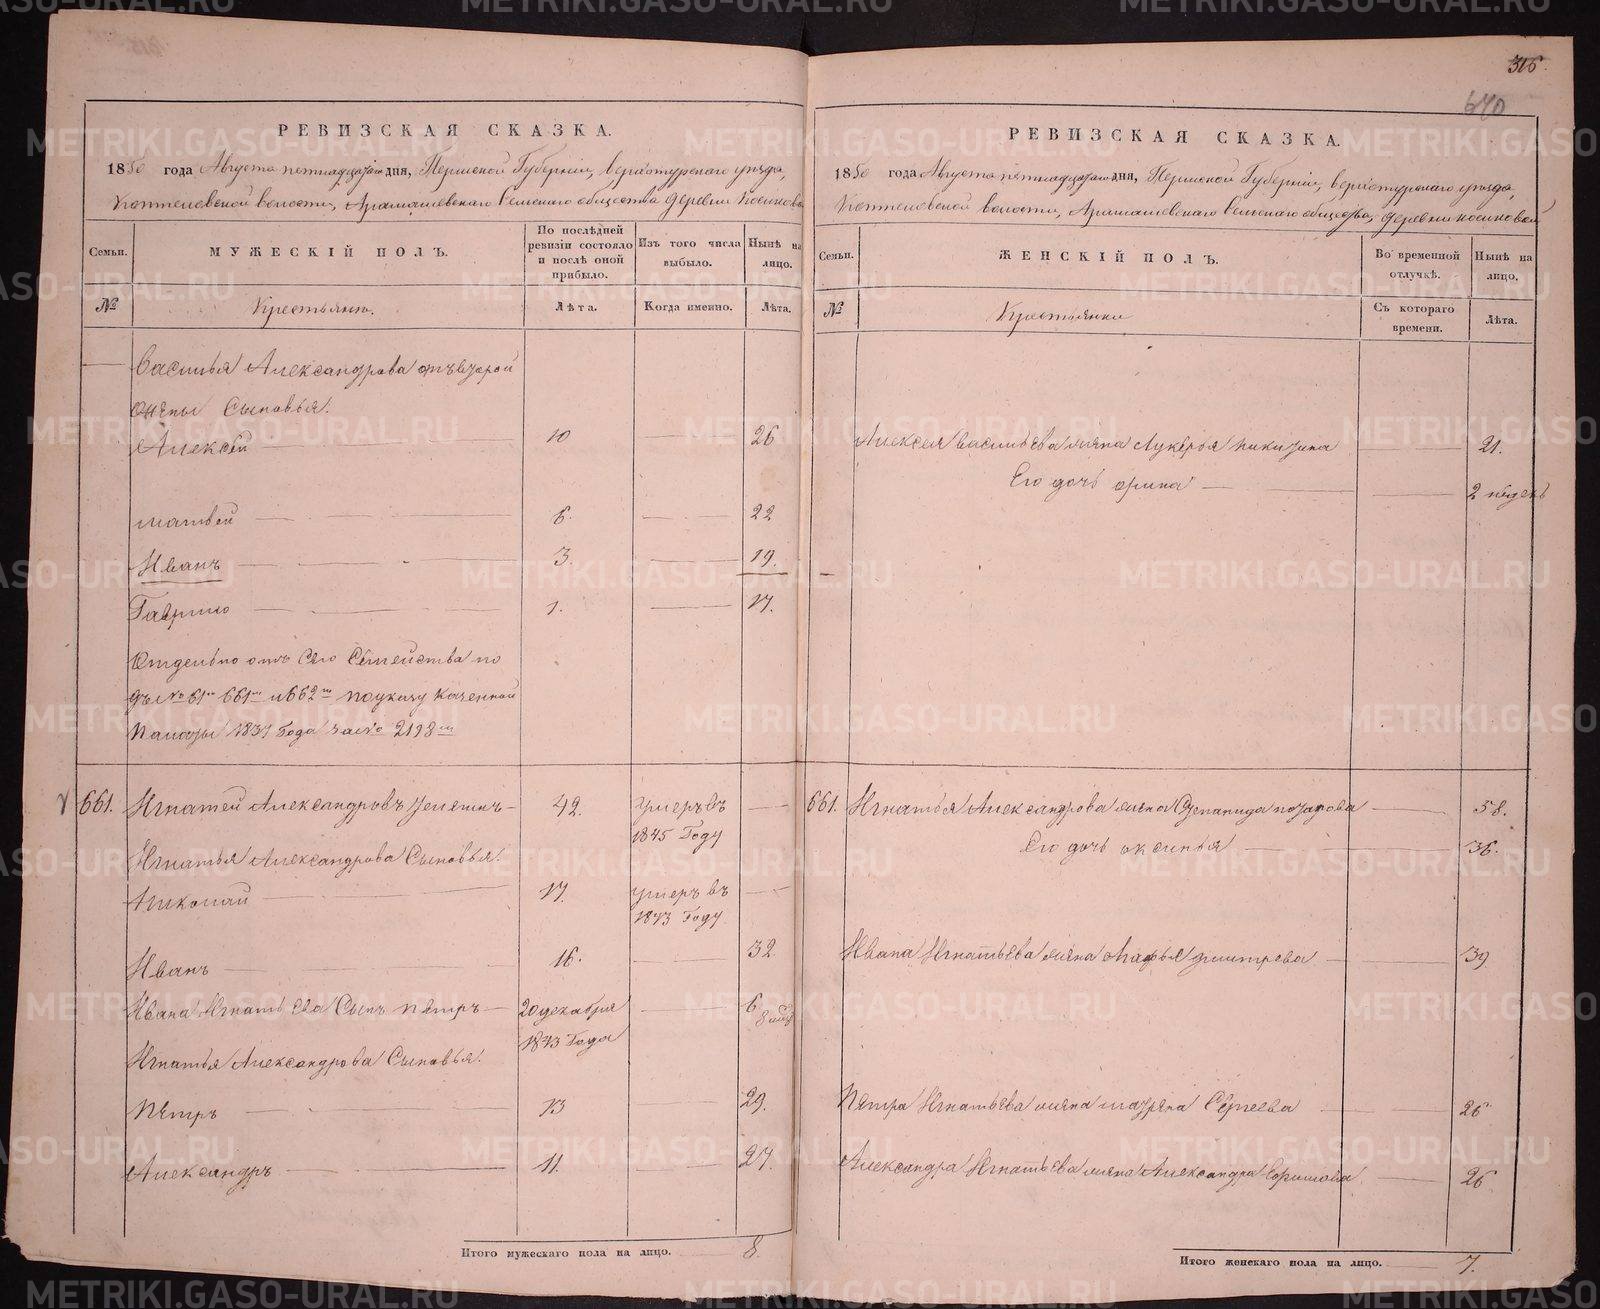 316.
640
РЕВИЗСКАЯ СКАЗКА.
1850 года Августа пятнадцатаго дня, Пермской Губерніи, верхотурскаго уѣзда,
Коптеловской волости, Арамашевскаго Сельскаго общества деревни Косиковой
Семьи.
МУЖЕСКІЙ ПОЛЪ.
По послѣдней ревизіи состояло и послѣ оной прибыло.
Изъ того числа выбыло.
Нынѣ на лицо.
№
Крестьянъ.
Лѣта.
Когда именно.
Лѣта.
Василья Александрова отъ второй
жены Сыновья.
Алексѣй 10 26
матвей 6. 22
Иванъ 3. 19.
Гаврило 1. 17.
Отдельно отъ Сего Семейства по
дъ № 61м 661м и 662м по указу Казенной
Палаты 1837 Года за № 2198м
661. Игнатей Александровъ 42. умеръ въ
1845 Году
Игнатья Александрова Сыновья.
Николай 17. умеръ въ
1843 Году
Иванъ 16. 32
Ивана Игнатьева Сынъ пѣтръ 20 декабря 6
1843 Года 8 мѣс
Игнатья Александрова Сыновья.
Пѣтръ 13 29.
Александръ 11. 27.
Итого мужескаго пола на лицо. 8.
РЕВИЗСКАЯ СКАЗКА.
1850 года Августа пятнадцатаго дня, Пермской Губерніи, верхотурскаго уѣзда,
Коптеловской волости, Арамашевскаго Сельскаго общества деревни Косиковой
Семьи.
ЖЕНСКІЙ ПОЛЪ.
Во временной отлучкѣ.
Нынѣ на лицо,
№
Крестьянки
Съ котораго времени.
Лѣта.
Алексея васильева жена Лукерья никитина 21.
Его дочь орина 2 недель
661. Игнатья Александрова жена Степанида назарова 58.
Его дочь оксинья 36.
Ивана Игнатьева жена Марфья дмитрева 39.
Пѣтра Игнатьева жена матрена Сергеева 26
Александра Игнатьева жена Александра Ефимова 26
Итого женскаго пола на лицо. 7.
METRIKI.GASO-URAL.RU